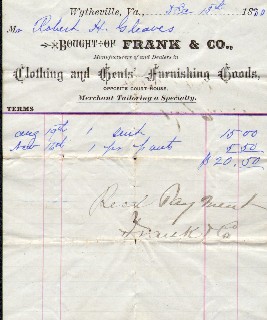 Wytheville, Va., Dec 18th 1880
Mr Robert H. Gleaves
BOUGHT OF FRANK & CO.,
Manufacturers of and Dealers in
Clothing and Gents' Furnishing Goods,
OPPOSITE COURT HOUSE.
Merchant Tailoring a Specialty.
TERMS
Aug 19th 1 suit 15.00
Nov 1 pr pants 5.50
$20.50
Recd Payment
Frank & Co